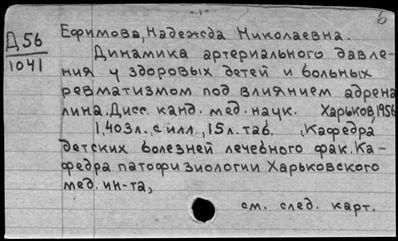 Б
Д56
1041
Ефимова, Надежда Николаевна.
Динамика артериального давле-
ния у здоровых детей и больных
ревматизмом под влиянием адрена
лина. Дисс. канд. мед. наук. Харьков, 1956
1,403л., с илл., 15л. таб. , Кафедра
детских болезней лечебного фак. Ка-
федра патофизиологии Харьковского
мед. ин-та,
см. след. карт.